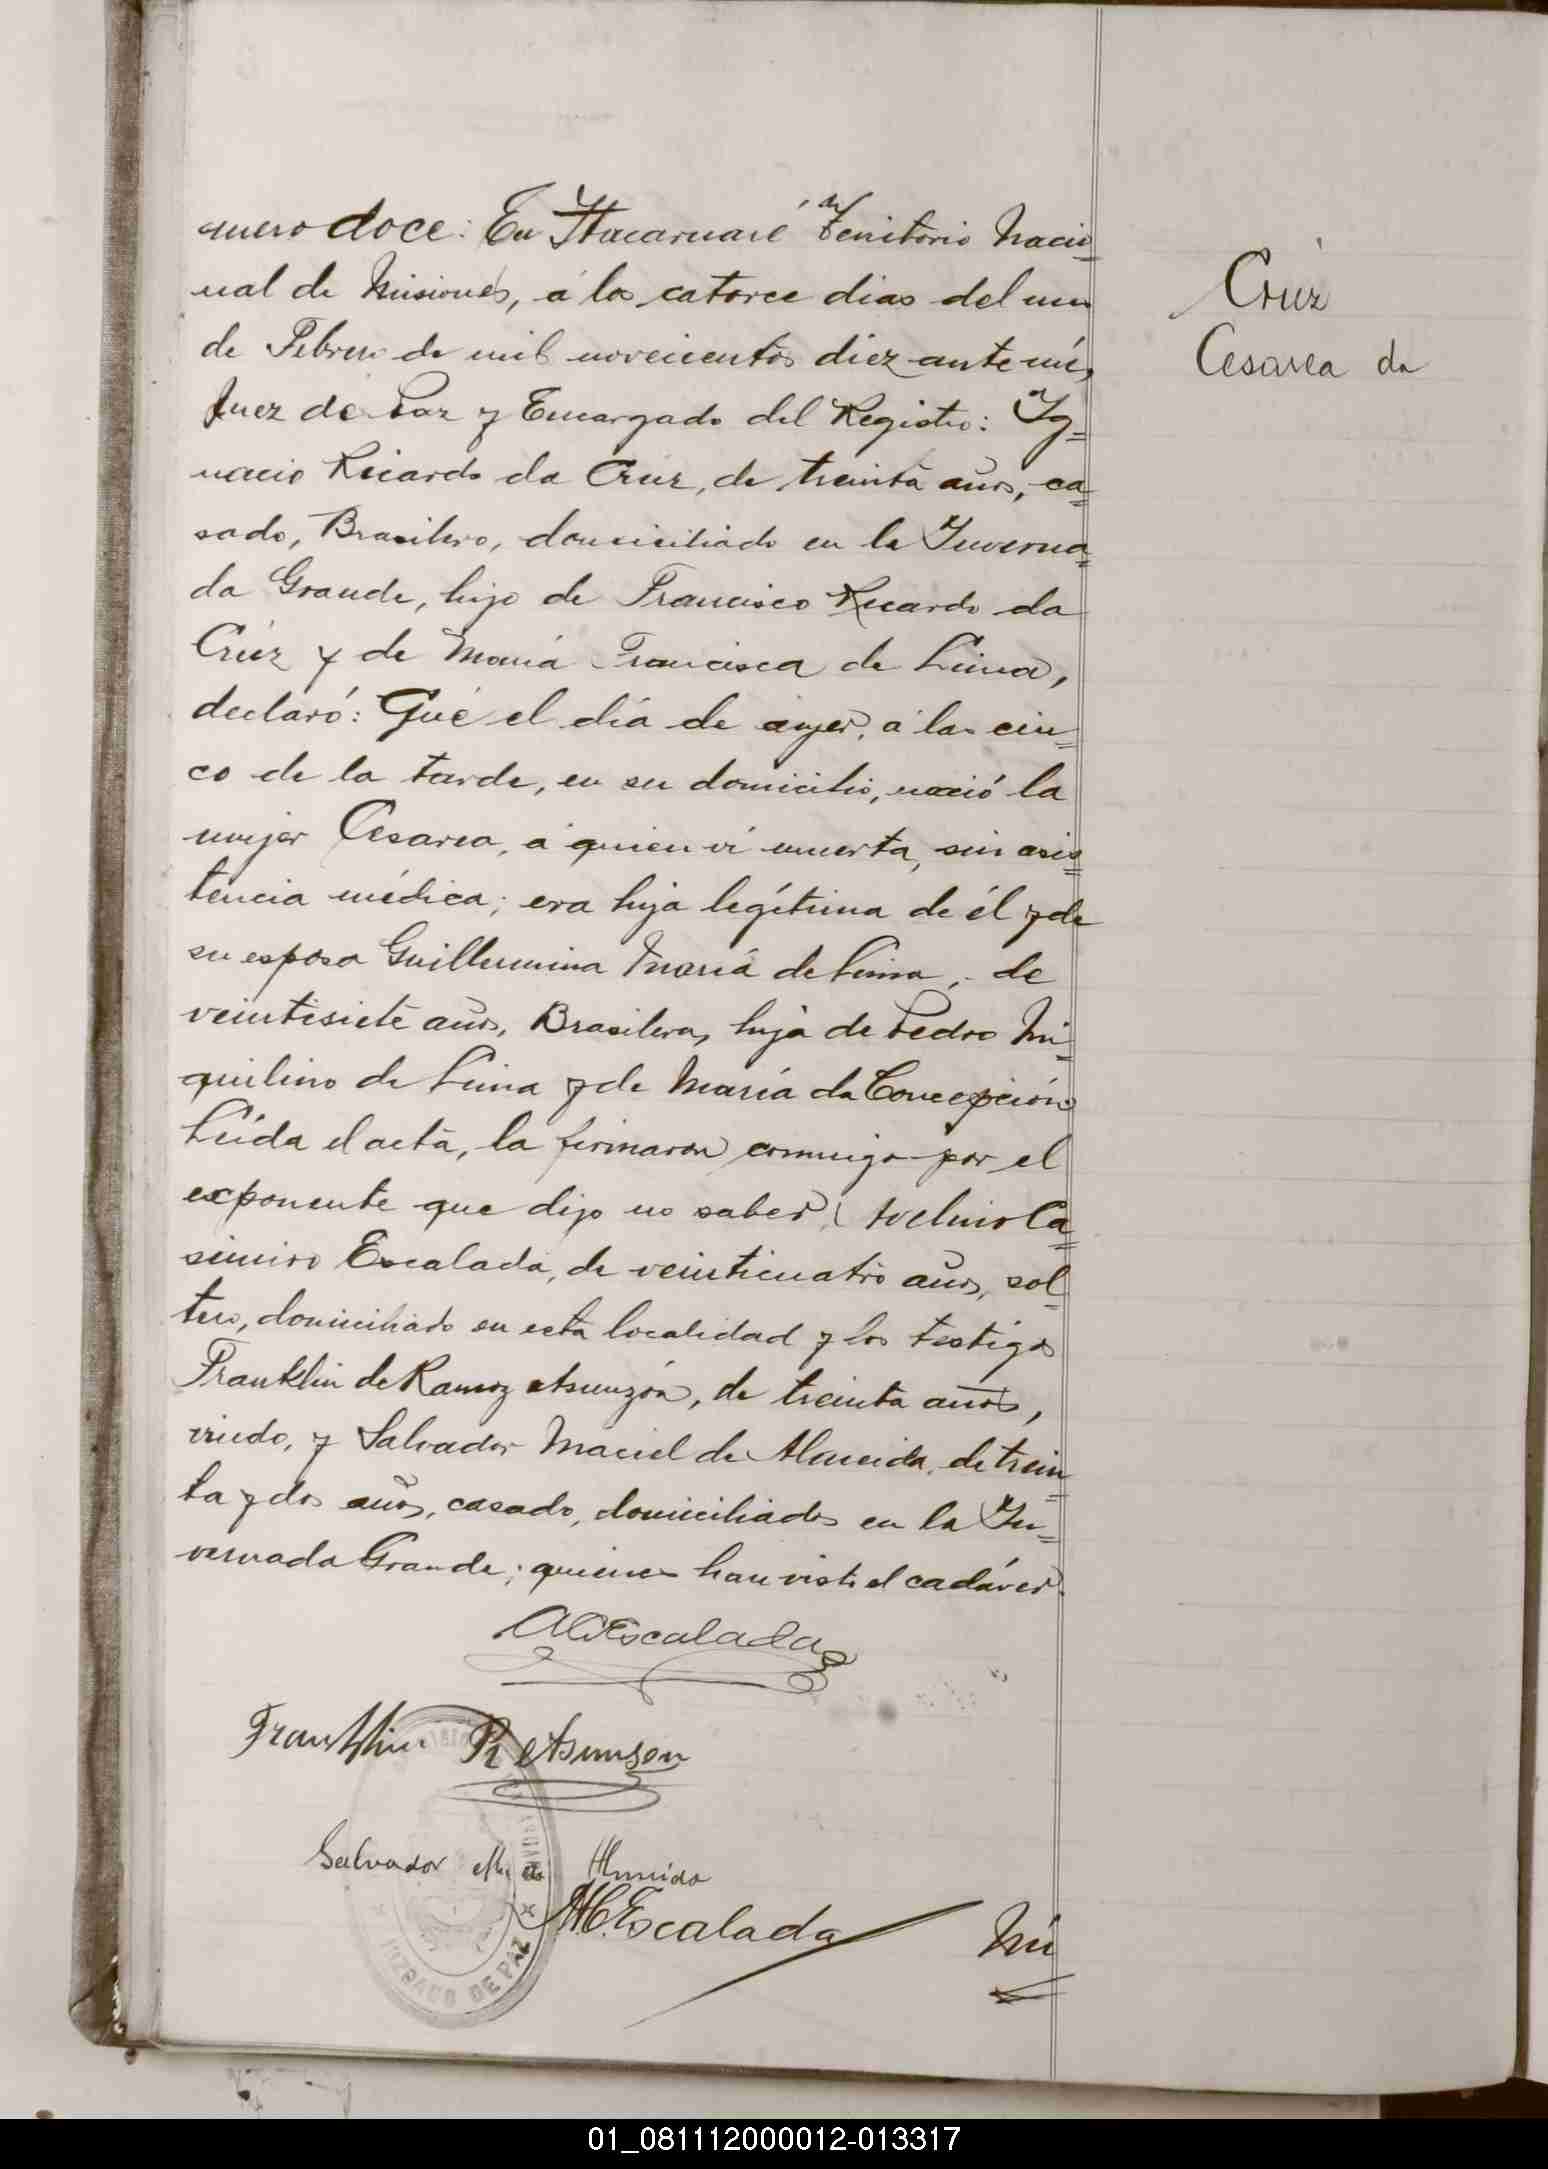 mero doce: En Itacaruaré, Territorio Nacio=
nal de Misiones, á los catorce dias del mes
de Febrero de mil novecientos diez ante mi,
Juez de Paz y Encargado del Registro: Ig=
nacio Ricardo da Crúz, de treinta años, ca=
sado, Brasilero, domiciliado en la Inverna=
da Grande, hijo de Francisco Ricardo da
Crúz y de María Francisca de Lima,
declaró: Qué el día de ayer, á las cin=
co de la tarde, en su domicilio, nació la
mujer Cesarea, á quien ví muerta, sin asis=
tencia médica; era hija legítima de él y de
su esposa Guillermina María de Lima, de
veintisiete años, Brasilera, hija de Pedro Mi=
quilino de Lima y de María da Concepción
Leída el acta, la firmaron conmigo por el
exponente que dijo no saber, Avelino Ca=
simiro Escalada, de veinticuatro años, sol=
tero, domiciliado en esta localidad y los testigos
Franklin de Ramoz Asunzón, de treinta años,
viudo, y Salvador Maciel de Almeida, de trein=
ta y dos años, casado, domiciliados en la In=
vernada Grande; quienes han visto el cadáver.
ACEscalada
Franklin R Asunson
Salvador M. de Almeida
A.C.Escalada
Nú
JUZGADO DE PAZ
Crúz
Cesarea da
01_081112000012-013317